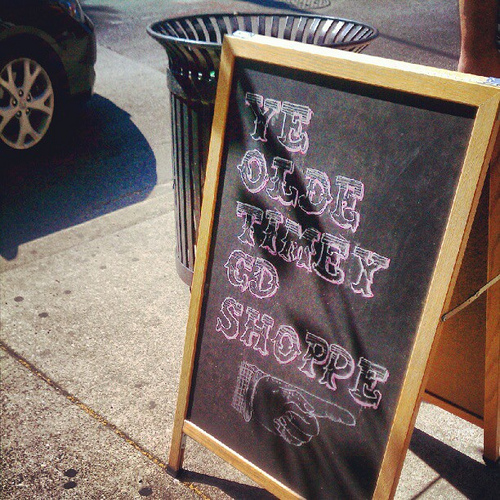 YE
OLDE
TIMEY
CD
SHOPPE